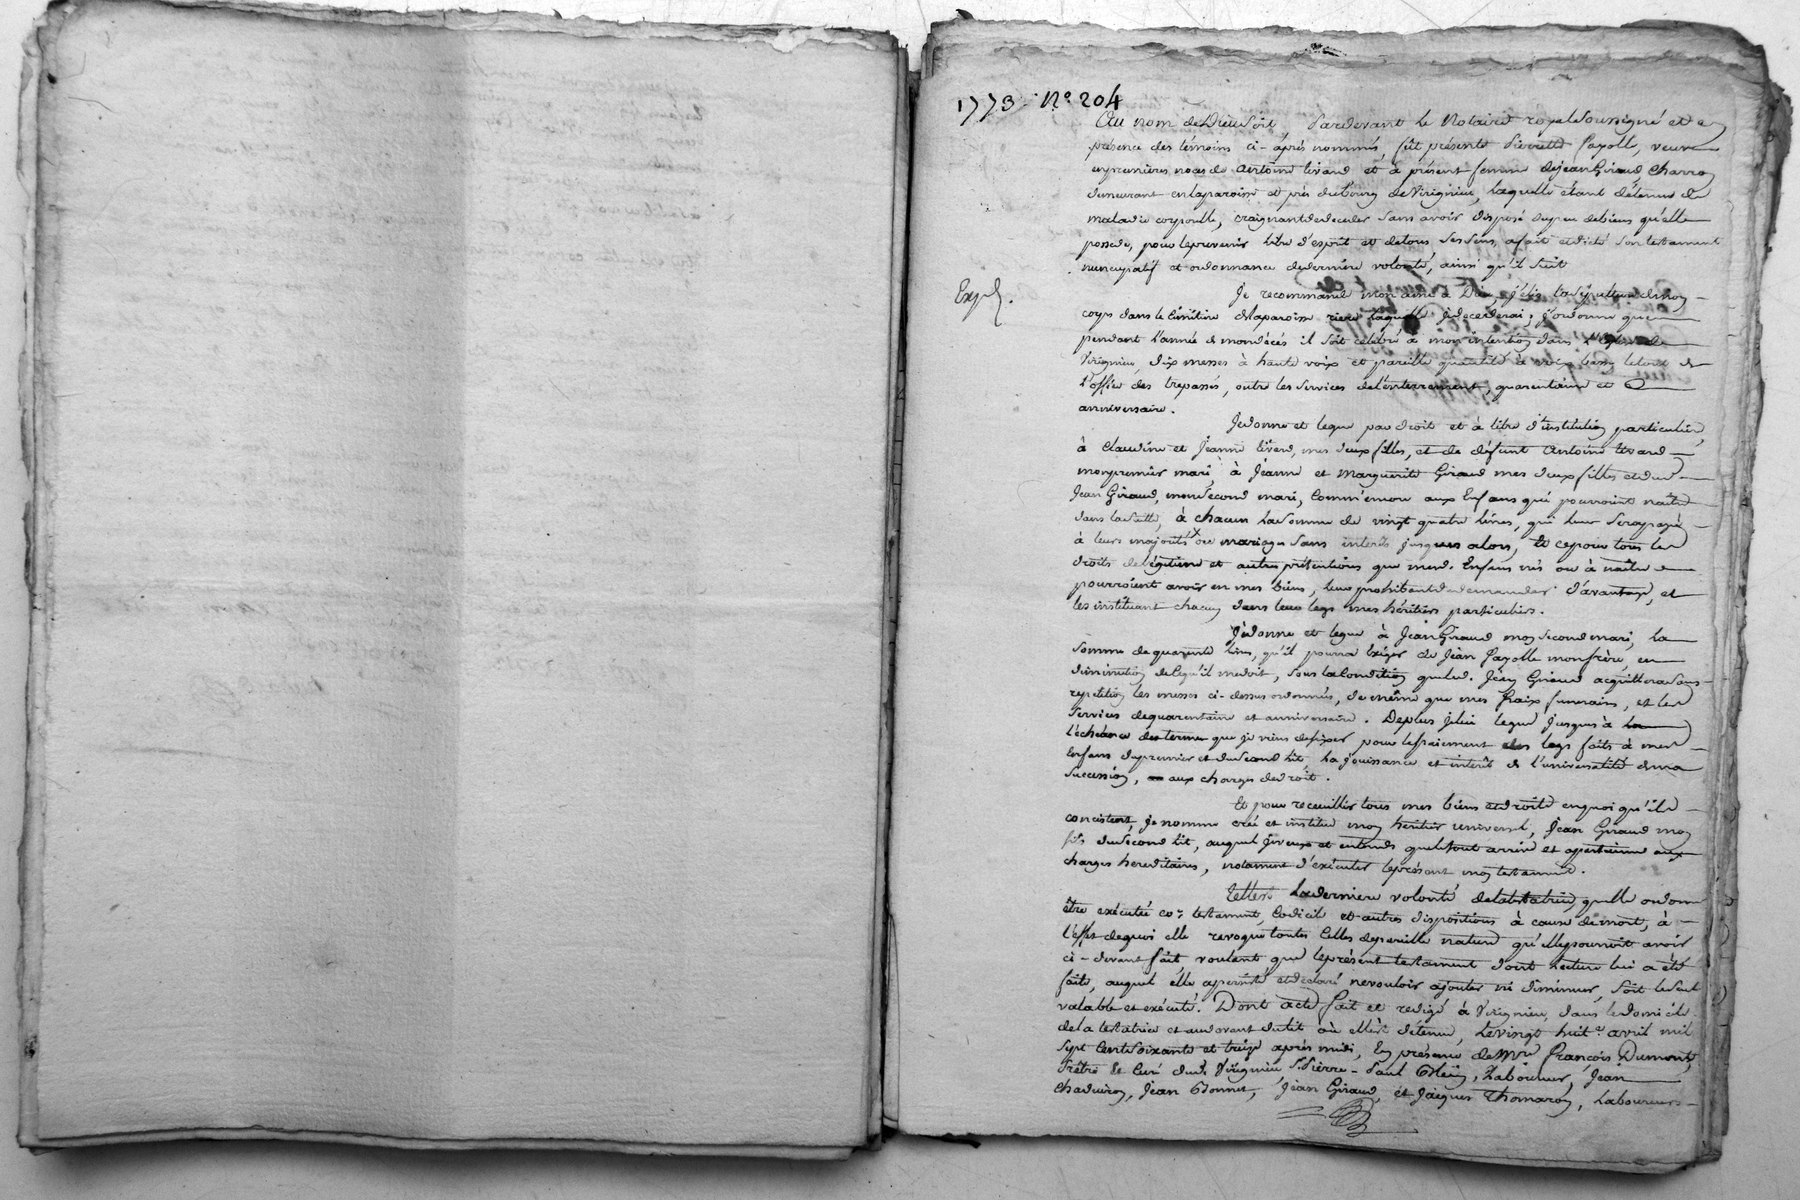 1773 N° 204
Au nom de Dieu soit, Pardevant le Notaire royal soussigné et en
présence des témoins ci-après nommés, fût présente Pierrette Payolle, veuve
en premières noces de Antoine tivand et à présent femme de Jean Giraud, Charron
demeurant en la paroisse et près du bourg de Virignieu, laquelle étant détenue de
maladie corporelle, craignant de deceder sans avoir disposé du peu de biens qu'elle
possede, pour le prevenir libre d'esprit et de tous ses sens, a fait et dicté son testament
nuncupatif et ordonnance de derniere volonté, ainsi qu'il suit
Exp.
Je recommande mon ame à Dieu, j'élis la sépulture de mon
corps dans le cimitière de la paroisse riere laquelle je decederai; j'ordonne que
pendant l'année de mon décés il soit célébré à mon intention dans l'Eglise de
Virignieu, dix messes à haute voix et pareille quantité à voix basse le tout de
l'office des trepassés, outre les services de l'enterrement, quarantaine et
anniversaire.
Je donne et legue par droit et à titre d'institution particulière,
à Claudine et Jeanne tivand, mes deux filles, et de défunt Antoine tivand
mon premier mari, à Jeanne et Marguerite Giraud mes deux filles et dud.
Jean Giraud, mon second mari, comm'encore aux Enfans qui pourroient naître
dans la suite, à chacun la somme de vingt quatre livres, qui leur sera payée
à leurs majorités ou mariages sans interêts jusques alors, Et ce pour tous les
droits de légitime et autres prétentions que mesd. Enfans nés ou à naître
pourroient avoir en mes biens, leur prohibant de demander d'avantage, et
les instituant chacun dans leur legs mes héritiers particuliers.
Je donne et legue à Jean Giraud mon second mari, la
somme de quarante livres, qu'il pourra Exiger de Jean Payolle mon frère, en
diminution de ce qu'il me doit, sous la condition que led. Jean Giraud acquittera sans
repetition les messes ci-dessus ordonnées, de même que mes fraix funerains, et les
services de quarantaine et anniversaire. De plus je lui legue jusques à la
l'échéance des termes que je viens de fixer pour le paiement des legs faits à mes
Enfans du premier et du second lit, la jouissance et interêt de l'universalité de ma
succession, aux charges de droit.
Et pour recueillir tous mes biens et droits en quoi qu'ils
concistent, je nomme crée et institue mon héritier universel, Jean Giraud mon
fils du second lit, auquel je veux et entends que le tout arrive et appartienne aux
charges hereditaires, notament d'exécuter le présent mon testament.
Telle est la derniere volonté de la testatrice, qu'elle ordonne
être exécutée co: testament, codicile et autres dispositions à cause de mort, à
l'effet de quoi elle revoque toutes celles de pareille nature qu'elle pourroit avoir
ci-devant fait voulant que le présent testament dont lecture lui a été
faite, auquel elle a persisté et déclaré ne vouloir ajouter ni diminuer, soit le seul
valable et exécuté. Dont acte fait et redigé à Virignieu, dans le domicile
de la testatrice et au devant du lit où elle est détenue, le vingt huit avril mil
sept cent soixante et treize après midi, En présence de Mre François Dumont,
Prêtre et Curé dud. Virignieu Sr. Pierre-Paul, Laboureur, Jean
Chaduiron, Jean Bonnet, Jean Giraud, et Jacques Thomaron, Laboureurs